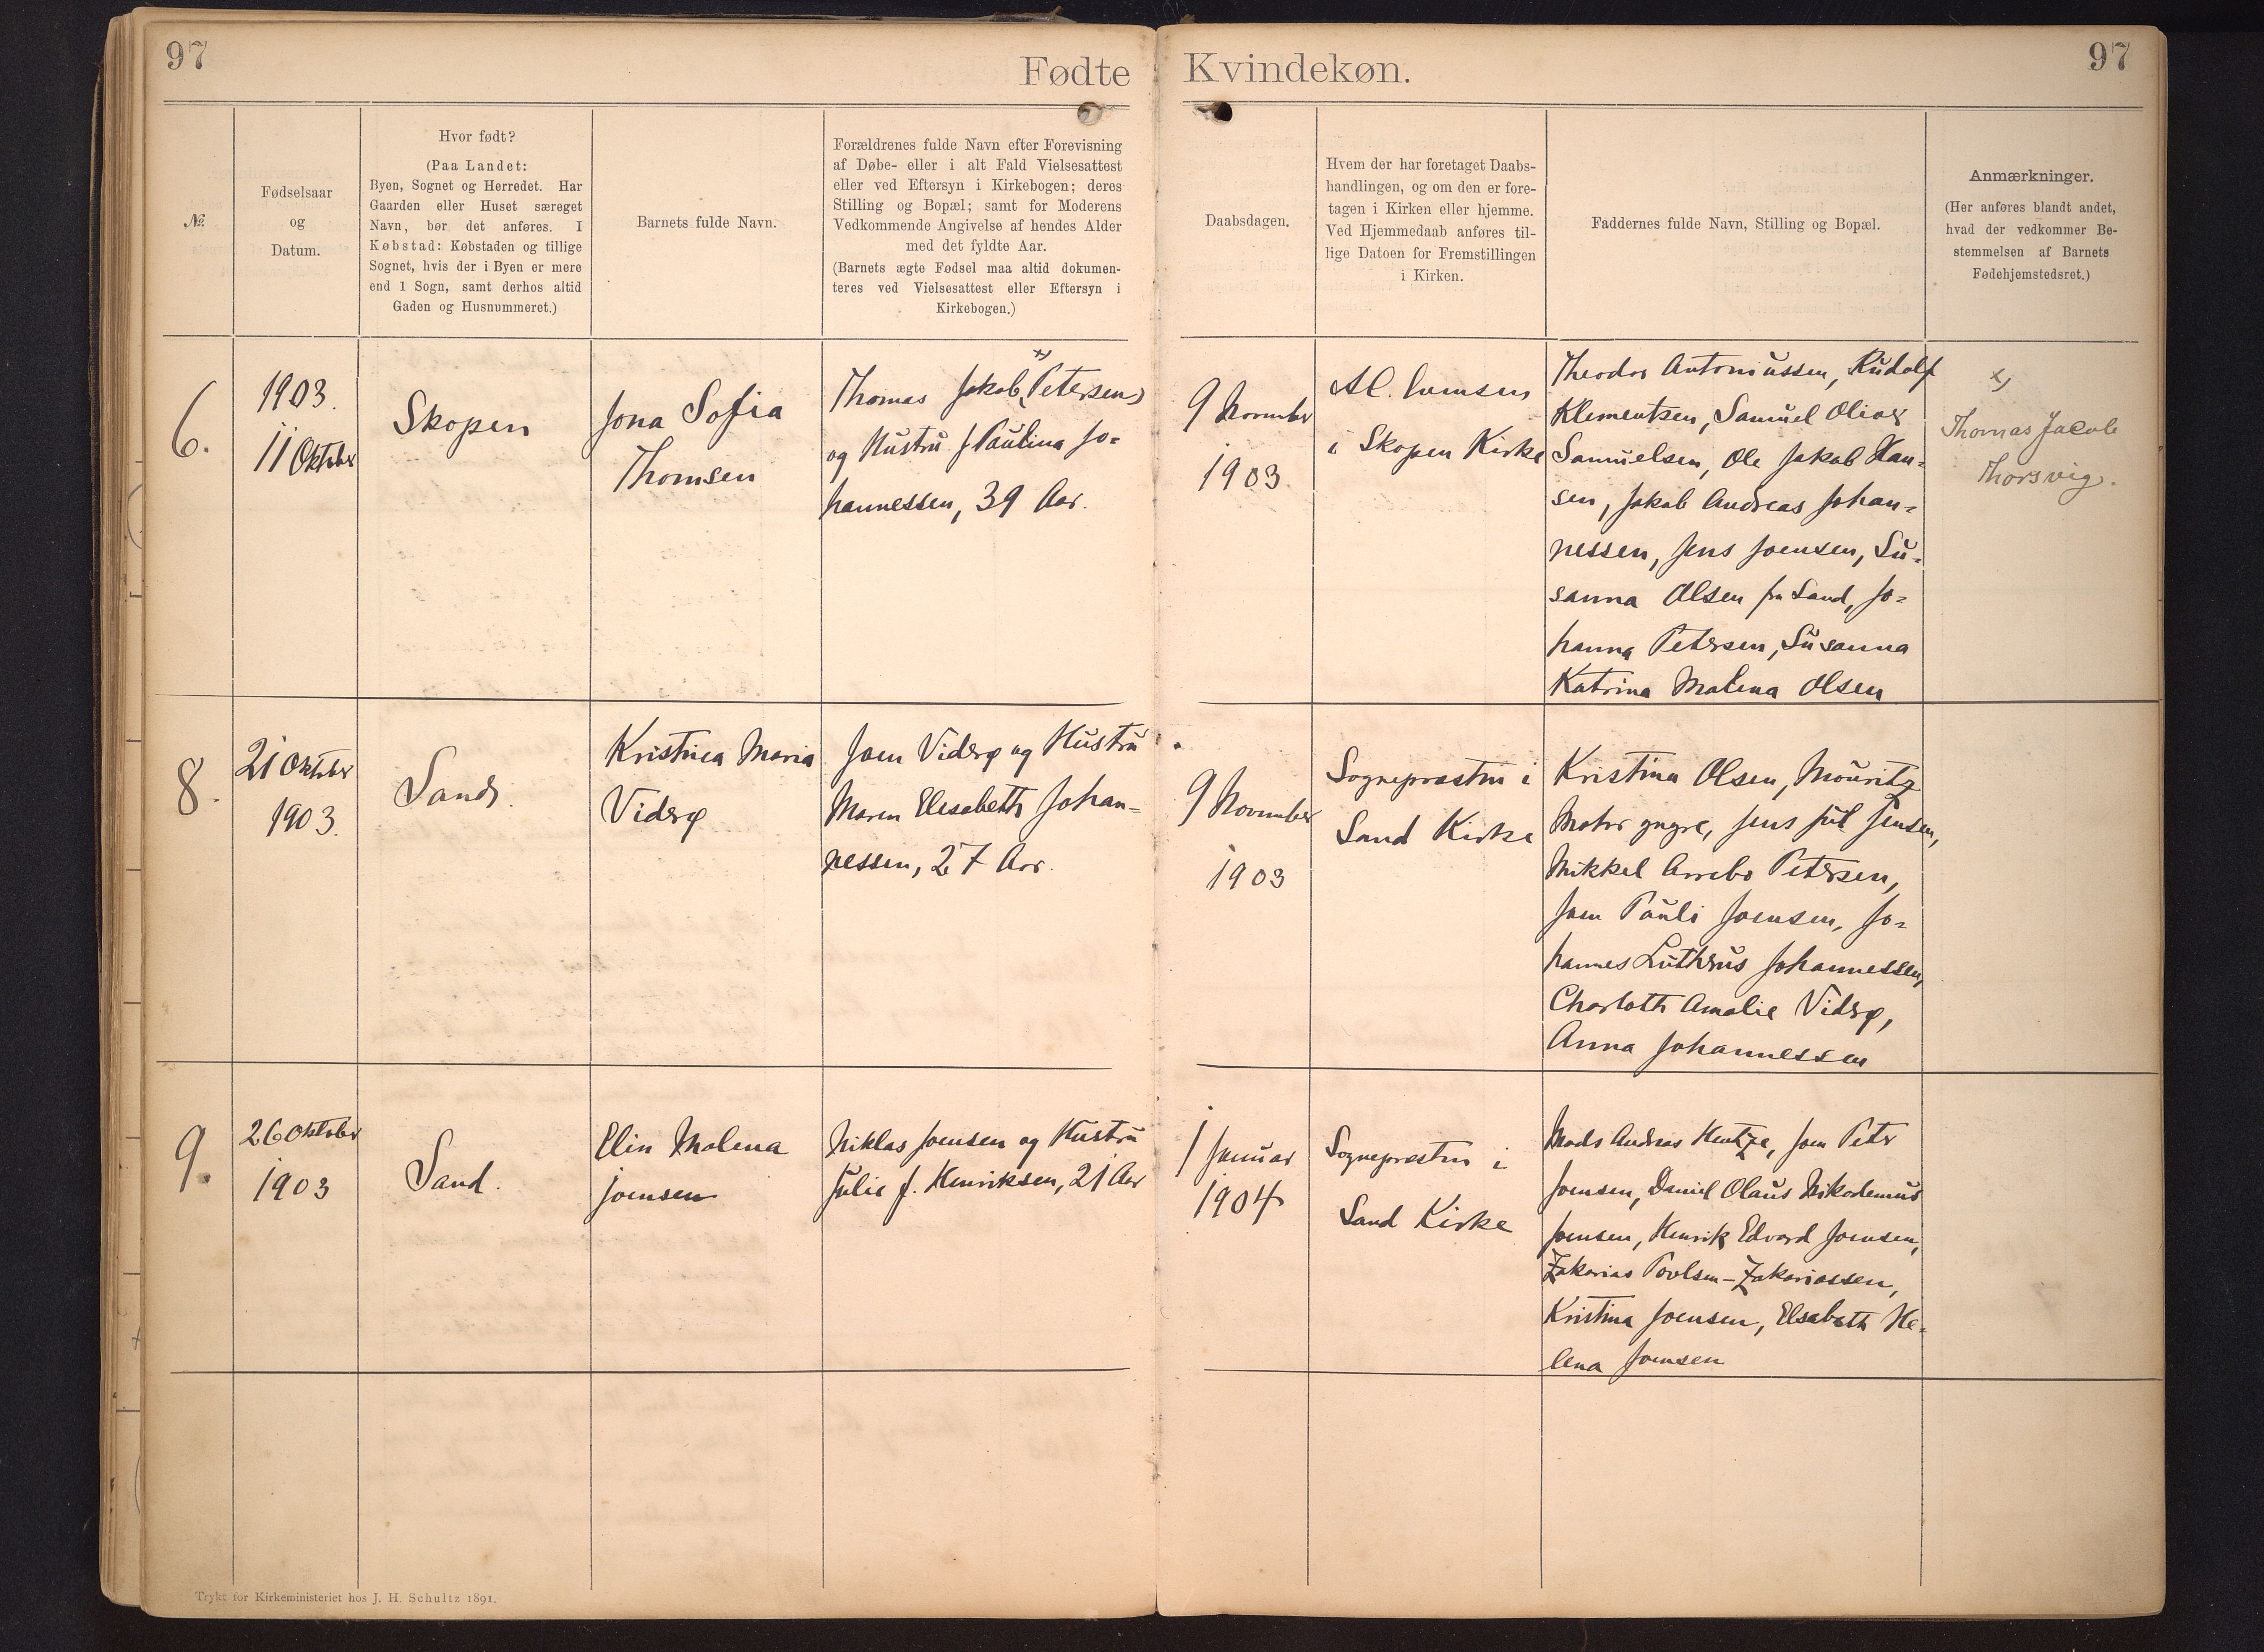 97
Fødte
Kvindekøn.
97
№
Fødselsaar
og
Datum.
Hvor født?
(Paa Landet:
Byen, Sognet og Herredet. Har
Gaarden eller Huset særeget
Navn, bør det anføres. I
Købstad: Købstaden og tillige
Sognet, hvis der i Byen er mere
end 1 Sogn, samt derhos altid
Gaden og Husnummeret.)
Barnets fulde Navn.
Forældrenes fulde Navn efter Forevisning
af Døbe- eller i alt Fald Vielsesattest
eller ved Eftersyn i Kirkebogen; deres
Stilling og Bopæl; samt for Moderens
Vedkommende Angivelse af hendes Alder
med det fyldte Aar.
(Barnets ægte Fødsel maa altid dokumen-
teres ved Vielsesattest eller Eftersyn i
Kirkebogen.)
Daabsdagen.
Hvem der har foretaget Daabs-
handlingen, og om den er fore-
tagen i Kirken eller hjemme.
Ved Hjemmedaab anføres til-
lige Datoen for Fremstillingen
i Kirken.
Faddernes fulde Navn, Stilling og Bopæl.
Anmærkninger.
(Her anføres blandt andet,
hvad der vedkommer Be-
stemmelsen af Barnets
Fødehjemstedsret.)
6.
1903.
11 Oktober
Skopen
Jona Sofia
Thomsen
Thomas Jakob x) (Petersen)
og Hustru f Paulina Jo-
hannessen, 39 Aar.
9 November
1903
i Skopen Kirke
Theodor Antoniussen, Rudolf
Klementsen, Samuel Oliver
Samuelsen, Ole Jakob Han-
sen, Jakob Andreas Johan-
nessen, Jens Joensen, Su-
sanna Olsen fra Sand, Jo-
hanna Petersen, Susanna
Katrina Malena Olsen
x)
Thomas Jacob
Thorsvig.
8.
21 Oktober
1903.
Sand.
Kristina Maria
Viderø
Joen Viderø og Hustru
Maren Elisabeth Johan-
nessen, 27 Aar.
9 November
1903
Sognepræsten i
Sand Kirke
Kristina Olsen, Mouritz
Mohr yngre, Jens Jul Jensen,
Mikkel Arrebo Petersen,
Joen Pauli Joensen, Jo-
hannes Lutherus Johannessen,
Charlotte Amalie Viderø,
Anna Johannessen
9.
26 Oktober
1903
Sand.
Elin Malena
Joensen
Niklas Joensen og Hustru
Julie f. Henriksen, 21 Aar
1 Januar
1904
Sognepræsten i
Sand Kirke
Mads Andreas Hentze, Joen Peter
Joensen, Daniel Olaus Nikodemus
Joensen, Henrik Edvard Joensen,
Zakarias Povlsen-Zakariassen,
Kristina Joensen, Elsabeth He-
lena Joensen
Trykt for Kirkeministeriet hos J. H. Schultz 1891.